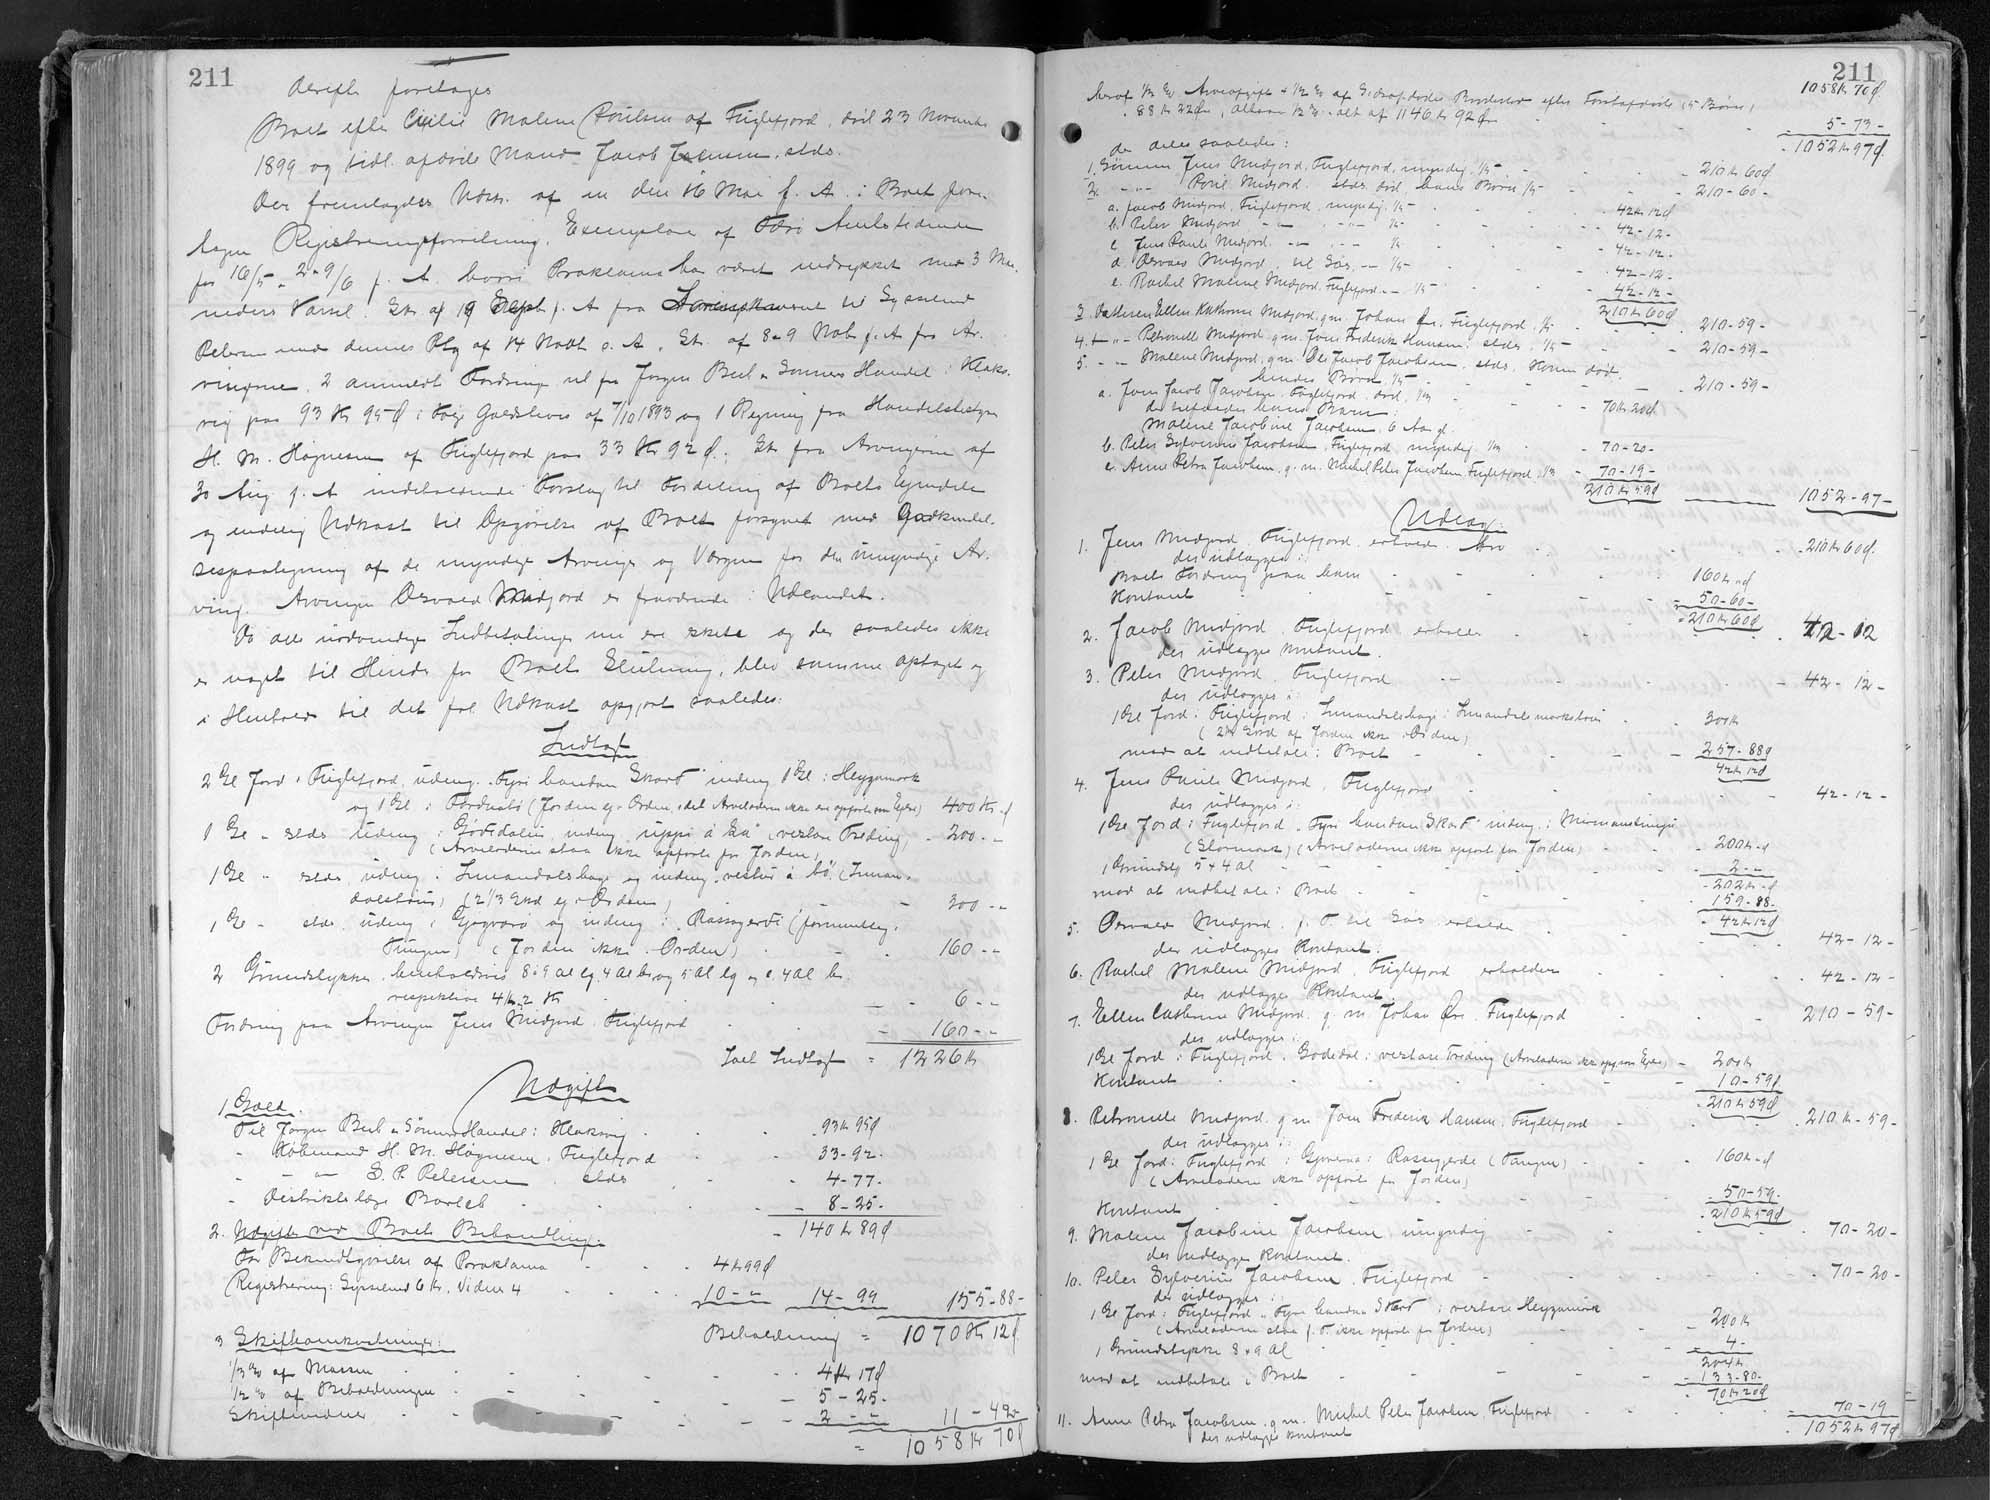 211
derefter foretages
Boet efter Cicilie Malene Poulsen af Fuglefjord, död 23 Novemb.
1899 og tidl. afdöde Mand Jacob Joensen, stds.
Der fremlagdes Udskr. af en den 16 Mai f. A. i Boet fore-
tagen Registreringsforretning. Exemplare af Færö Amtstidende
for 16/5 - 2 - 9/6 f. A. hvori Proklama har været indrykket med 3 Maa-
neders Varsel. Sk. af 19 Sept f. A fra til Sysselmd
Petersen med dennes Ptg af 14 Novbr s. A, Sk. af 8 - 9 Novbr f. A fra Ar-
vingerne, 2 anmeldte Fordringer nl fra Jörgen Bech & Sönners Handel i Klaks-
vig paa 93 Kr 95 Ø i Följe Gældsbevis af 7/10 1893 og 1 Regning fra Handelsbestyrer
H. M. Högnesen af Fuglefjord paa 33 Kr 92 Ø. Sk. fra Arvingerne af
30 Aug f. A indeholdende Forslag til Fordeling af Boets Ejendele
og endelig Udkast til Opgörelse af Boet forsynet med Godkendel-
sespaategning af de myndige Arvinger og Værgen for den umyndige Ar-
ving. Arvingen Osvald Midjord er fraværende i Udlandet.
Da alle nödvendige Indbetalinger nu ere skete og der saaledes ikke
er noget til Hinder for Boets Slutning, blev samme optaget og
i Henhold til det frl Udkast opgjort saaledes:
Indtægt
2 Gl Jord i Fuglefjord, udeng. Fyri handan Skarð indeng 1 Gl i Heygamörk
og 1 Gl i (Jorden ej i Orden, idet Arveladerne ikke ere opförte som Ejere) 400 Kr - Ø
1 Gl " stds udeng i Göðidalin, indeng, uppi á Gil (vestara Treding) - 200 - "
(Arveladerne staa ikke opförte for Jorden)
1 Gl " stds udeng i Innandalshaga og indeng vestur á bö (Innan-
dalstoun) (2 1/3 Skd ej i Orden) - - 300 - "
1 Gl " stds udeng i Gjógvará og indeng i Rassagerði (formentlig
Tungen) (Jorden ikke i Orden) - - 160 - "
2 Grundstykker henholdsvis 8 & 9 al lg. 4 Al br og 5 Al lg og 4 Al br.
respektive 4 Kr, 2 Kr - - 6 - "
Fordring paa Arvingen Jens Midjord, Fuglefjord - 160 - "
Ialt Indtægt = 1226 Kr
Udgift
1 Gæld.
Til Jörgen Bech & Sönners Handel i Klaksvig - - 93 Kr 95 Ø
- Köbmand H. M. Högnesen, Fuglefjord - - 33 - 92 -
- - " - S. P. Petersen, stds - - 4 - 77 -
- Distriktslæge - - - 8 - 25 -
- 140 Kr 89 Ø
2. Udgifter ved Boets Behandling.
For Bekendtgörelse af Proklama - - - 4 Kr 99 Ø
Registrering: Sysselmd 6 Kr, Vidner 4 - - 10 - " 14 - 99 155 - 88 -
Beholdning = 1070 Kr 12 Ø
3 Skifteomkostninger:
1/3 % af Massen - - - - - 4 Kr 17 Ø
1/2 % af Beholdningen - - - - - 5 - 25 -
Skiftevidner - - - - - 2 - " 11 - 42 -
= 1058 Kr 70 Ø
211
1058 Kr 70 Ø
heraf 1/2 % Arveafgift + 1/2 % af Sidstafdödes Boedel efter Förstafdöde (5 Börn)
88 Kr 22 Øre, altsaa 1/2 % alt af 1146 Kr 92 Øre - - - 5 - 73 -
- 1052 Kr 97 Ø
der deles saaledes:
1. Sönnen Jens Midjord, Fuglefjord, myndig, 1/5 - - - 210 Kr 60 Ø
2. - " - Poul Midjord, stds död, hans Börn 1/5 - - - 210 - 60 -
a. Jacob Midjord, Fuglefjord, myndig, 1/5 - - 42 Kr 12 Ø
b. Peter Midjord - " - - " - 1/5 - - 42 - 12 -
c. Jens Pauli Midjord, - " - - " - 1/5 - - 42 - 12 -
d. Osvald Midjord, til Søs, - " - 1/5 - - 42 - 12 -
e. Rachel Malene Midjord, Fuglefjord, - " - 1/5 - - 42 - 12 -
210 Kr 60 Ø
3. Datteren Ellen Kathrine Midjord, g. m. Johan Öre, Fuglefjord, 1/5 - - 210 - 59 -
4. - " - Petronelle Midjord g. m. Joen Frederik Hansen, stds, 1/5 - - 210 - 59 -
5. - " - Malene Midjord, g. m. Ole Jacob Jacobsen, stds, Konen död
hendes Börn 1/5 - - - 210 - 59 -
a. Joen Jacob Jacobsen, Fuglefjord, död, 1/3 - - 70 Kr 20 Ø
der hans Barn:
Malene Jacobine Jacobsen, 6 Aar gl.
b. Peter Sylverius Jacobsen, Fuglefjord, myndig 1/3 - 70 - 20 -
c. Anne Petra Jacobsen, g. m. Michel Peter Jacobsen Fuglefjord 1/3 - 70 - 19 -
210 Kr 59 Ø 1052 - 97 -
Udlæg:
1. Jens Midjord, Fuglefjord, erholder Arv - - - - 210 Kr 60 Ø
der udlægges i:
Boets Fordring paa ham - - - 160 Kr - Ø
Kontant - - - 50 - 60 -
210 Kr 60 Ø
2. Jacob Midjord, Fuglefjord erholder - - - 42 - 12
der udlægges kontant.
3. Peter Midjord, Fuglefjord - " - - - - 42 - 12 -
der udlægges i:
1 Gl Jord i Fuglefjord i Innandalshaga i Innandalsmarkatoun - - 300 Kr
(2 1/3 Skd af Jorden ikke i Orden)
mod at indbetale i Boet - - - - 257 - 88 Ø
42 Kr 12 Ø
4. Jens Pauli Midjord, Fuglefjord - - - 42 - 12 -
der udlægges i:
1 Gl Jord i Fuglefjord, Fyri handan Skarð indeng i
(Arveladerne ikke opfört for Jorden) - - 200 Kr - Ø
1 Grundstk 5 x 4 Al - - - 2 - "
- 202 Kr - Ø
mod at indbetale i Boet - - - 159 - 88 -
42 Kr 12 Ø
5. Osvald Midjord, f. T. til Søs, erholder - - - 42 - 12 -
der udlægges Kontant.
6. Rachel Malene Midjord, Fuglefjord erholder - - - 42 - 12 -
der udlægges Kontant.
7. Ellen Cathrine Midjord, g. m. Johan Öre, Fuglefjord - - - 210 - 59 -
der udlægges i:
1 Gl Jord i Fuglefjord, Godedal i vestare Treding (Arveladerne ikke opf. som Ejere) - 200 Kr
Kontant - - - - 10 - 59 Ø
210 Kr 59 Ø
8. Petronelle Midjord, g. m. Joen Frederik Hansen, Fuglefjord - - 210 Kr - 59 -
der udlægges i:
1 Gl Jord i Fuglefjord i Gjovera i Rassegjerde (Tungen) - - 160 Kr - Ø
(Arveladerne ikke opfört for Jorden)
Kontant - - - - 50 - 59 -
210 Kr 59 Ø
9. Malene Jacobine Jacobsen, umyndig - - - 70 - 20 -
der udlægges Kontant.
10. Peter Sylverius Jacobsen, Fuglefjord - - - 70 - 20 -
der udlægges i:
1 Gl Jord i Fuglefjord, Fyri handan Skarð i vestare Heygamörk
(Arveladerne staa f. T. ikke opfört for Jorden) - - 200 Kr
1 Grundstykke 8 x 9 Al - - - 4 -
204 Kr
mod at indbetale i Boet - - - 133 - 80 -
70 Kr 20 Ø
11. Anne Petra Jacobsen, g. m. Michel Peter Jacobsen, Fuglefjord - - 70 - 19
der udlægges kontant
1052 Kr 97 Ø